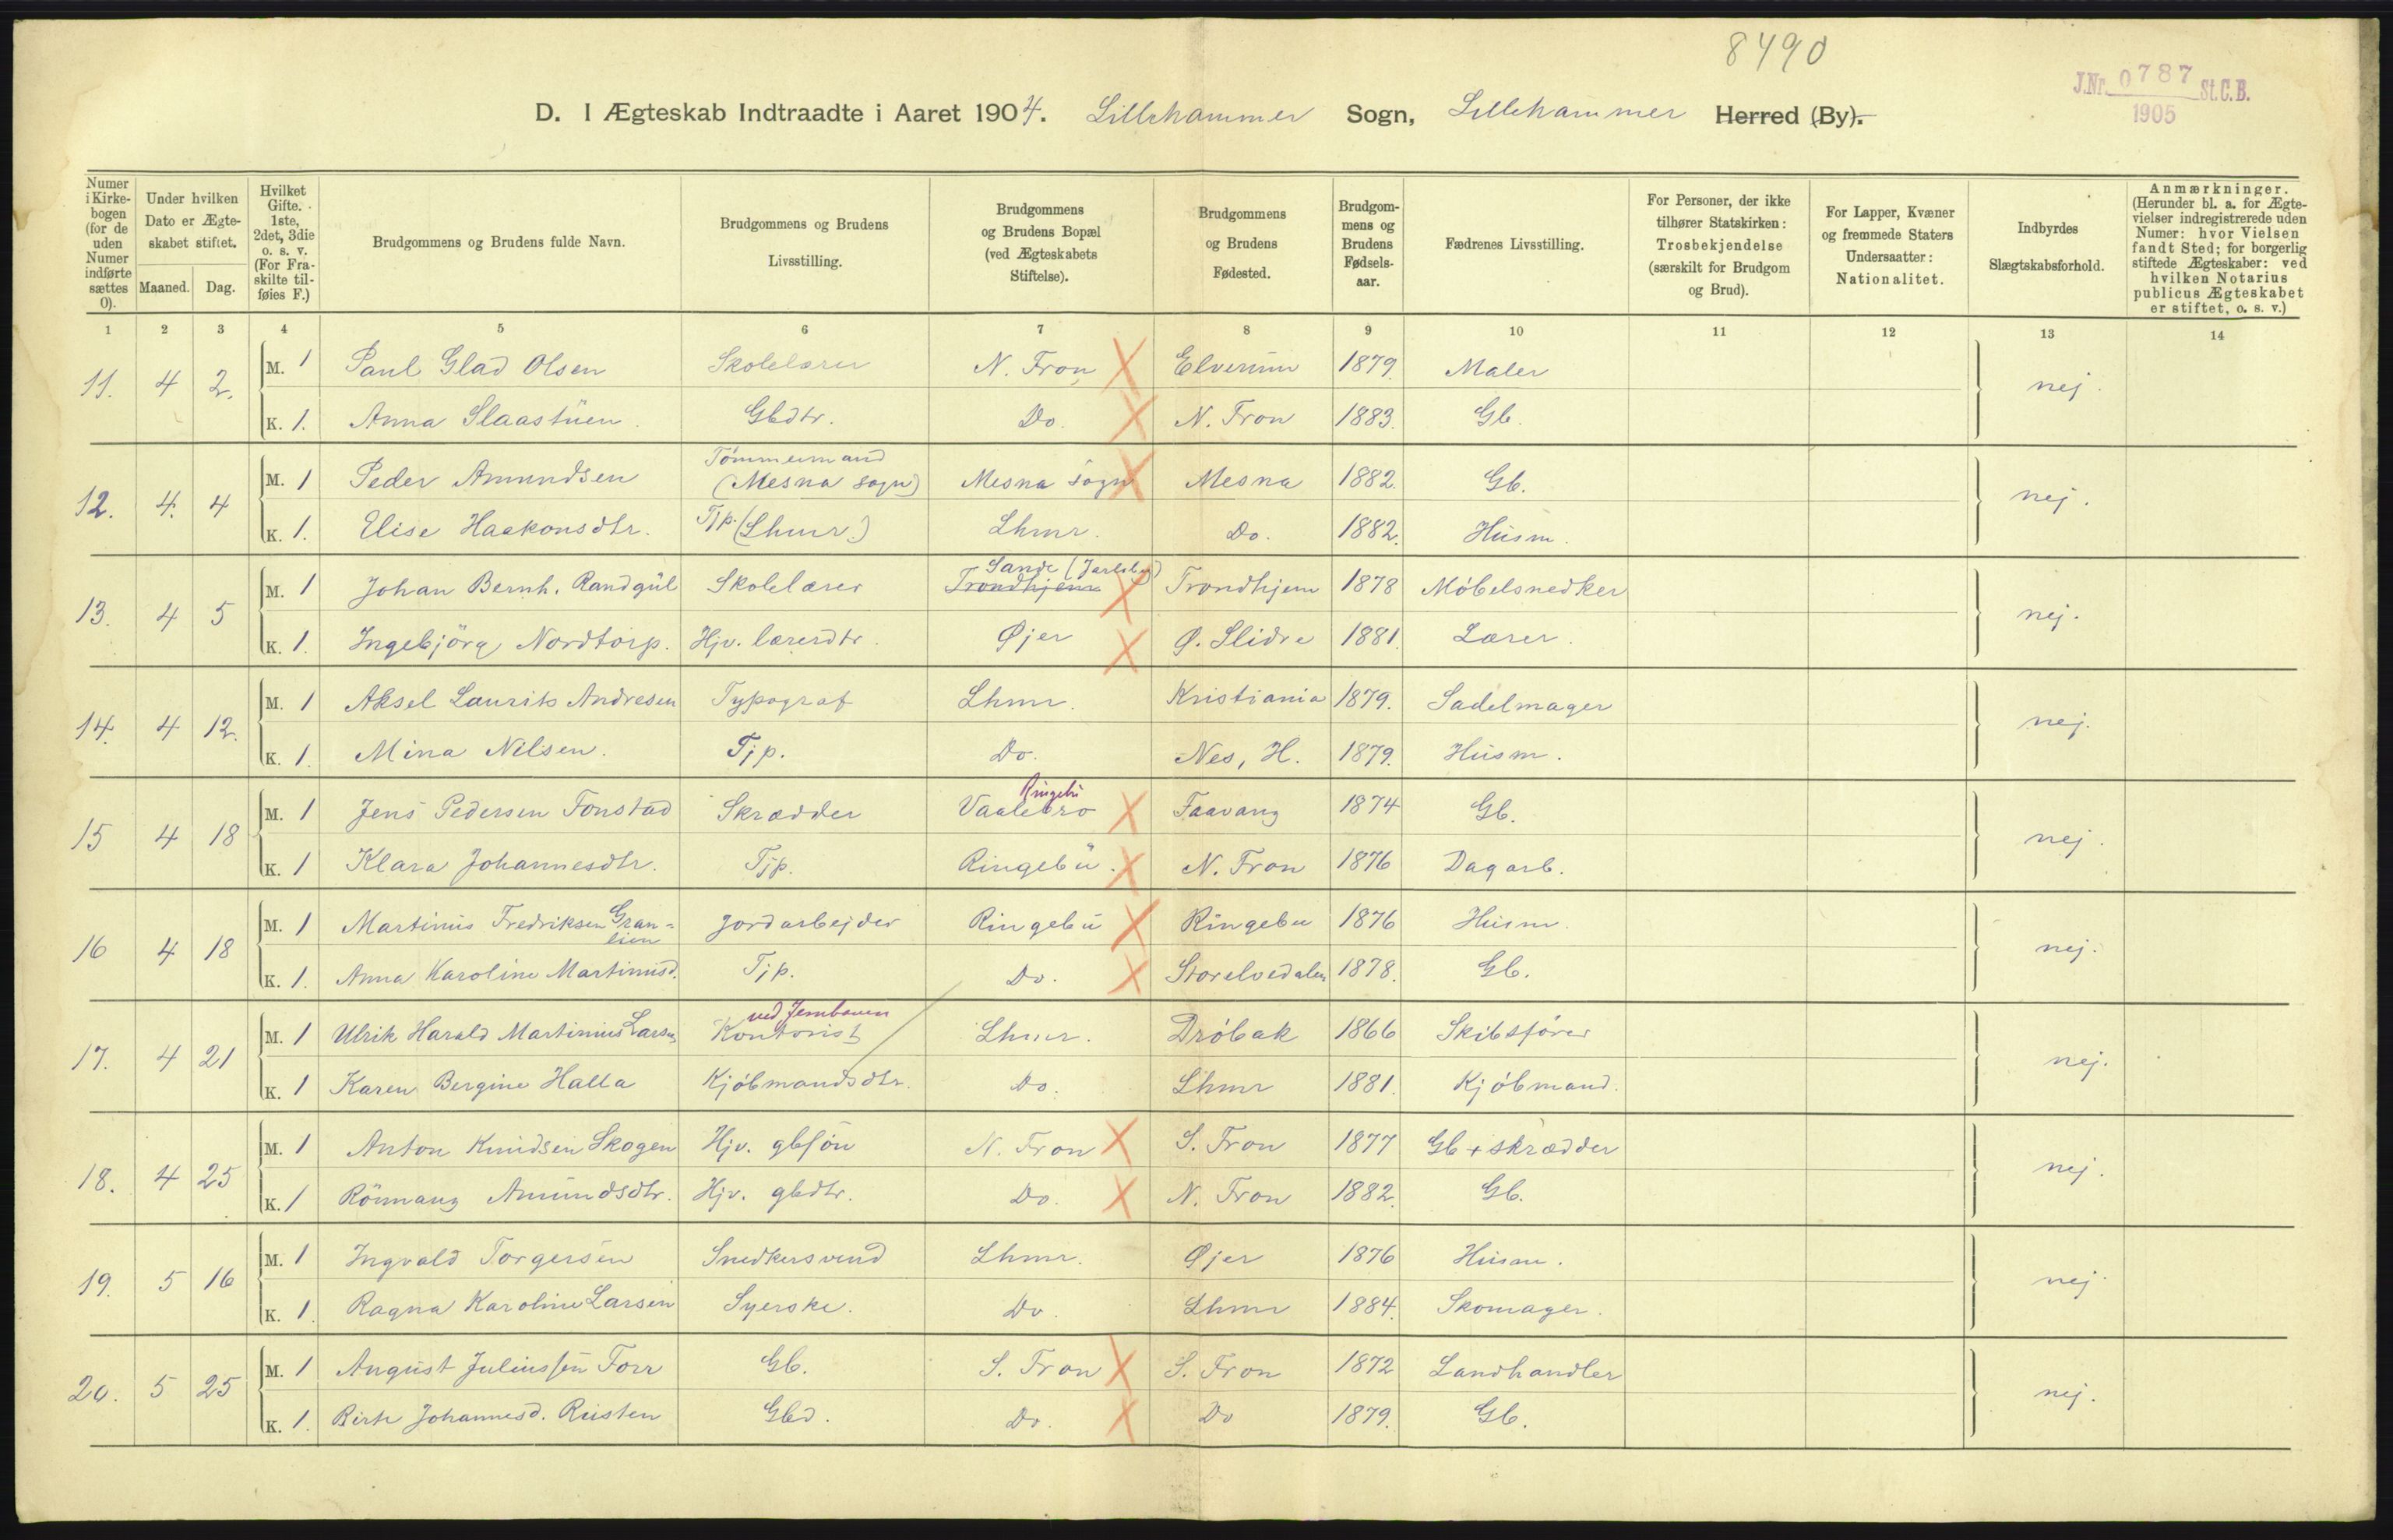 8490
J.Nr. 0787 St.C.B.
1905
D. I Ægteskab Indtraadte i Aaret 1904. Lillehammer Sogn, Lillehammer Herred (By).
Numer i Kirkebogen (for de uden Numer indførte sættes 0).
Under hvilken Dato er Ægteskabet stiftet.
Maaned. Dag.
Hvilket Gifte. 1ste, 2det, 3die o. s. v. (For Fraskilte tilføies F.)
Brudgommens og Brudens fulde Navn.
Brudgommens og Brudens Livsstilling.
Brudgommens og Brudens Bopæl (ved Ægteskabets Stiftelse).
Brudgommens og Brudens Fødested.
Brudgommens og Brudens Fødselsaar.
Fædrenes Livsstilling.
For Personer, der ikke tilhører Statskirken: Trosbekjendelse (særskilt for Brudgom og Brud).
For Lapper, Kvæner og fremmede Staters Undersaatter: Nationalitet.
Indbyrdes Slægtskabsforhold.
Anmærkninger. (Herunder bl. a. for Ægtevielser indregistrerede uden Numer: hvor Vielsen fandt Sted; for borgerlig stiftede Ægteskaber: ved hvilken Notarius publicus Ægteskabet er stiftet, o. s. v.)
1 2 3 4 5 6 7 8 9 10 11 12 13 14
11. 4 2. M. 1 Paul Glad Olsen Skolelærer N. Fron Elverum 1879. Maler nej.
K. 1. Anna Slaastuen. Gbdtr. Do. N. Fron 1883. Gb.
12. 4. 4 M. 1 Peder Amundsen Tømmermand (Mesna sogn) Mesna sogn Mesna 1882. Gb. nej.
K. 1. Elise Haakonsdtr. Tjp. (Lhmr.) Lhmr. Do. 1882. Husm.
13. 4 5 M. 1 Johan Bernh. Randgul Skolelærer Trondhjem Sande (Jarlsber) Trondhjem 1878 Møbelsnedker nej.
K. 1. Ingebjörg Nordtorp. Hjv. lærerdtr. Øjer Ø. Slidre 1881. Lærer.
14. 4 12. M. 1 Aksel Laurits Andresen Typograf Lhmr. Kristiania 1879. Sadelmager nej.
K. 1. Mina Nilsen. Tjp. Do. Nes, H. 1879. Husm.
15 4 18 M. 1 Jens Pedersen Fonstad Skrædder Vaalebro Ringebu Faavang 1874 Gb. nej.
K. 1 Klara Johannesdtr. Tjp. Ringebu. N. Fron 1876 Dagarb.
16 4 18 M. 1 Martinus Fredriksen Granlien Jordarbejder Ringebu Ringebu 1876 Husm. nej.
K. 1. Anna Karoline Martinusd. Tjp. Do. Storelvedalen 1878. Gb.
17. 4 21 M. 1 Ulrik Harald Martinius Larsen Kontorist ved Jernbanen Lhmr. Drøbak 1866 Skibsfører nej.
K. 1 Karen Bergine Halla Kjøbmandsdtr. Do. Lhmr 1881. Kjøbmand.
18. 4 25 M. 1 Anton Knudsen Skogen Hjv. gbsøn N. Fron S. Fron 1877 Gb + skrædder nej.
K. 1 Rönnaug Amundsdtr. Hjv. gbdtr. Do. N. Fron 1882. Gb.
19. 5 16 M. 1 Ingvald Torgersen Snedkersvend Lhmr. Øjer 1876 Husm. nej.
K. 1. Ragna Karoline Larsen Syerske. Do Lhmr 1884. Skomager.
20. 5 25 M. 1 August Juliussen Forr Gb. S. Fron S. Fron 1872 Landhandler nej.
K. 1. Birte Johannesd. Rusten Gbd. Do. Do 1879. Gb.